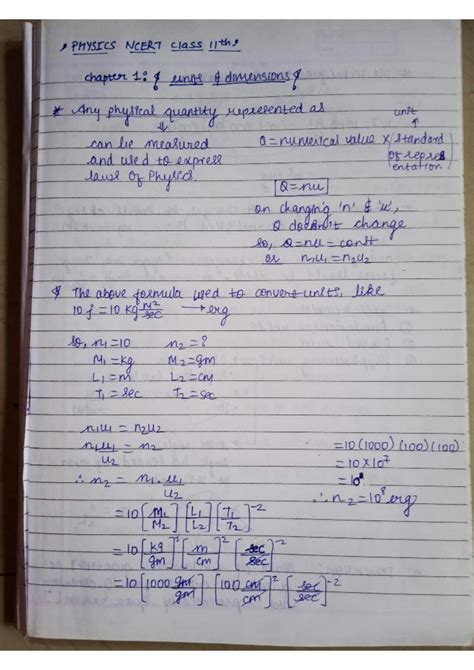 PHYSICS NCERT Class 11th
Chapter 1: units & dimensions
* Any physical quantity represented as
⇓
can be measured
and used to express
laws of Physics.
unit
↑
Q = numerical value × (standard
of repres
entation)
Q = nu
on changing 'n' & 'u',
Q doesn't change
so, Q = nu = const
or n₁u₁ = n₂u₂
The above formula used to convert units, like
10 J = 10 kg m²/sec → erg
so, n₁ = 10 n₂ = ?
M₁ = kg M₂ = gm
L₁ = m L₂ = cm
T₁ = sec T₂ = sec
n₁u₁ = n₂u₂
n₁u₁/u₂ = n₂
∴ n₂ = n₁.u₁/u₂
= 10 [M₁/M₂] [L₁/L₂] [T₁/T₂]⁻²
= 10 [kg/gm]¹ [m/cm]² [sec/sec]⁻²
= 10 [1000 gm/gm] [100 cm/cm]² [sec/sec]⁻²
= 10 (1000) (100) (100)
= 10 × 10⁷
= 10⁸
∴ n₂ = 10⁸ erg